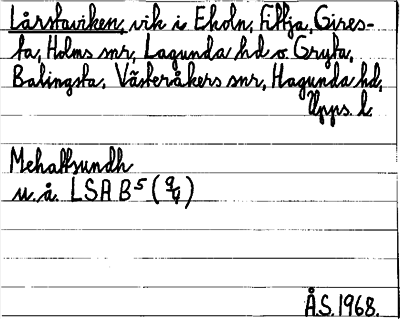 Lårstaviken, vik i Ekoln, Fittja, Gires-
ta, Holms snr, Lagunda hd o. Gryta,
Balingsta, Västeråkers snr, Hagunda hd,
Upps. l.
Mehaltsundh
u.å. LSA B5 (94)
Å.S. 1968.